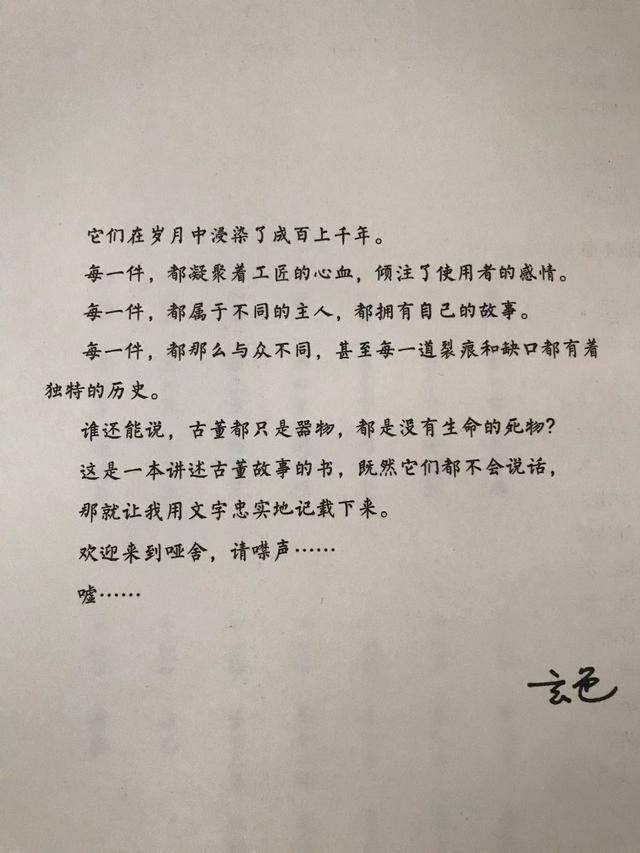 它们在岁月中浸染了成百上千年。
每一件，都凝聚着工匠的心血，倾注了使用者的感情。
每一件，都属于不同的主人，都拥有自己的故事。
每一件，都那么与众不同，甚至每一道裂痕和缺口都有着
独特的历史。
谁还能说，古董都只是器物，都是没有生命的死物？
这是一本讲述古董故事的书，既然它们都不会说话，
那就让我用文字忠实地记载下来。
欢迎来到哑舍，请噤声……
嘘……
玄色